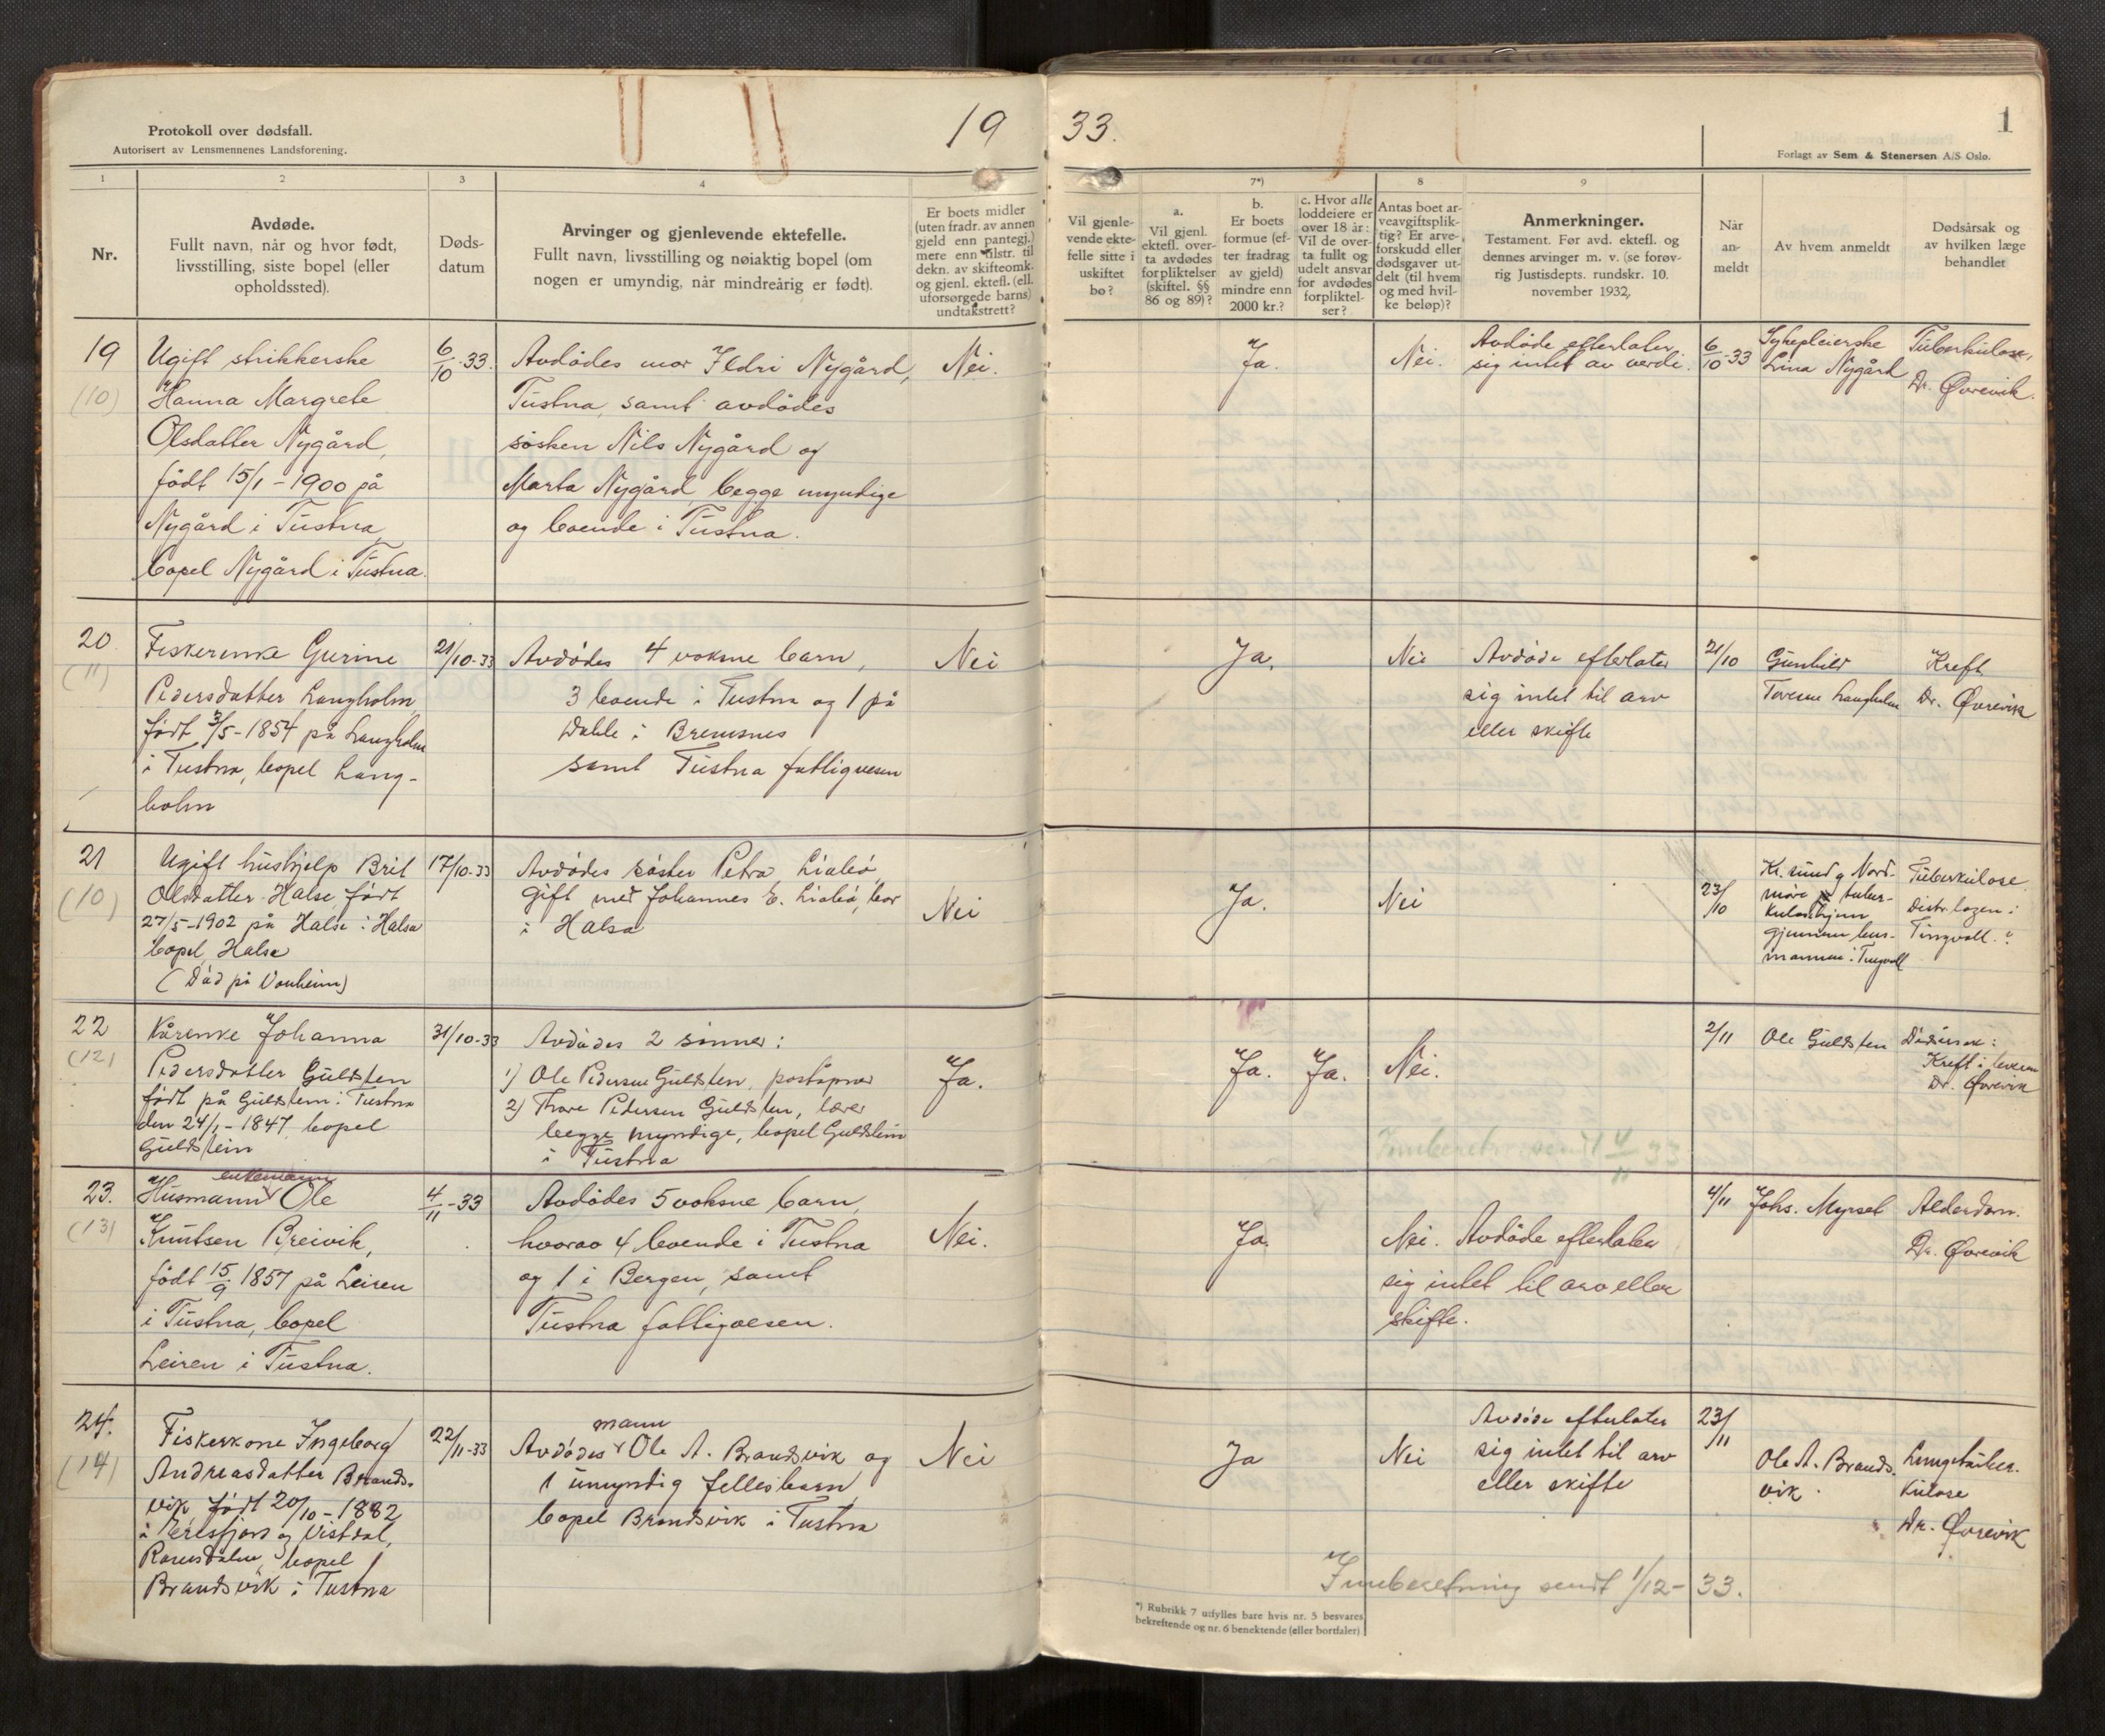 Protokoll over dødsfall.
Autorisert av Lensmennenes Landsforening.
19
33.
1
Forlagt av Sem & Stenersen A/S Oslo.
1
2
3
4
7*)
8
9
Nr.
Avdøde.
Fullt navn, når og hvor født,
livsstilling, siste bopel (eller
opholdssted).
Døds-
datum
Arvinger og gjenlevende ektefelle.
Fullt navn, livsstilling og nøiaktig bopel (om
nogen er umyndig, når mindreårig er født).
Er boets midler
(uten fradr. av annen
gjeld enn pantegj.)
mere enn tilstr. til
dekn. av skifteomk.
og gjenl. ektefl. (ell.
uforsørgede barns)
undtakstrett?
Vil gjenle-
vende ekte-
felle sitte i
uskiftet
bo?
a.
Vil gjenl.
ektefl. over-
ta avdødes
forpliktelser
(skiftel. §§
86 og 89)?
b.
Er boets
formue (ef-
ter fradrag
av gjeld)
mindre enn
2000 kr.?
c. Hvor alle
loddeiere er
over 18 år:
Vil de over-
ta fullt og
udelt ansvar
for avdødes
forpliktel-
ser?
Antas boet ar-
veavgiftsplik-
tig? Er arve-
forskudd eller
dødsgaver ut-
delt (til hvem
og med hvil-
ke beløp)?
Anmerkninger.
Testament. Før avd. ektefl. og
dennes arvinger m. v. (se forøv-
rig Justisdepts. rundskr. 10.
november 1932,
Når
an-
meldt
Av hvem anmeldt
Dødsårsak og
av hvilken læge
behandlet
19
(10)
Ugift strikkerske
Hanna Margrete
Olsdatter Nygård,
født 15/1-1900 på
Nygård i Tustna,
bopel Nygård i Tustna.
6/10-33.
Avdødes mor Ildri Nygård,
Tustna, samt avdødes
søsken Nils Nygård og
Marta Nygård, begge myndige
og boende i Tustna.
Nei.
Ja.
Nei.
Avdøde efterlater
sig intet av verdi.
6/10-33
Sykepleierske
Lina Nygård
Tuberkulose,
Dr. Øvrevik.
20.
(11)
Fiskerenke Gurine
Pedersdatter Langholm,
født 3/5-1854 på Langholm
i Tustna, bopel Lang-
holm
21/10-33
Avdødes 4 voksne barn,
3 boende i Tustna og 1 på
Dahle i Bremsnes
samt Tustna fattigvesen
Nei
Ja.
Nei
Avdøde efterlater
sig intet til arv
eller skifte
21/10
Gunhild
Toresen Langholm
Kreft
Dr. Øvrevik
21
(10)
Ugift hushjelp Brit
Olsdatter Halse, født
27/5-1902 på Halse i Halsa
bopel, Halse
(Død på Vonheim)
17/10-33
Avdødes søster Petra Liabø,
gift med Johannes E. Liabø, bor
i Halsa
Nei
Ja.
Nei
23/10
Kr.sund og Nord-
møre tuber-
kuloshjem
gjennem lens-
mannen i Tingvoll
Tuberkulose.
Distr.legen i
Tingvoll.
22
(12)
Kårenke Johanna
Pedersdatter Guldsten
født på Guldstein i Tustna
den 24/1-1847, bopel
Guldstein
31/10-33
Avdødes 2 sønner:
1) Ole Pedersen Guldsten, poståpner
2) Thore Pedersen Guldsten, lærer
begge myndige, bopel Guldstein
i Tustna
Ja.
Ja.
Ja.
Nei.
Innberetning sendt 4/11 33
2/11
Ole Guldsten
Dødsårsak:
Kreft i leveren
Dr. Øvrevik
23.
(13)
enkemann
Husmann Ole
Knutsen Breivik,
født 15/9 1857 på Leiren
i Tustna, bopel
Leiren i Tustna.
4/11-33
Avdødes 5 voksne barn,
hvorav 4 boende i Tustna
og 1 i Bergen, samt
Tustna fattigvesen.
Nei.
Ja.
Nei. Avdøde efterlater
sig intet til arv eller
skifte.
4/11
Johs. Myrset
Alderdom.
Dr. Øvrevik
24.
(14)
Fiskerkone Ingeborg
Andreasdatter Brands-
vik, født 20/10-1882
i Eresfjord og Vistdal,
Romsdalen, bopel
Brandsvik i Tustna
22/11-33
mann
Avdødes Ole A. Brandsvik og
1 umyndig fellesbarn,
bopel Brandsvik i Tustna
Nei
Ja
Nei
Avdøde efterlater
sig intet til arv
eller skifte
23/11
Ole A. Brands-
vik.
Lungetuber-
kulose
Dr. Øvrevik
Innberetning sendt 1/12-33.
*) Rubrikk 7 utfylles bare hvis nr. 5 besvares
bekreftende og nr. 6 benektende (eller bortfaler)